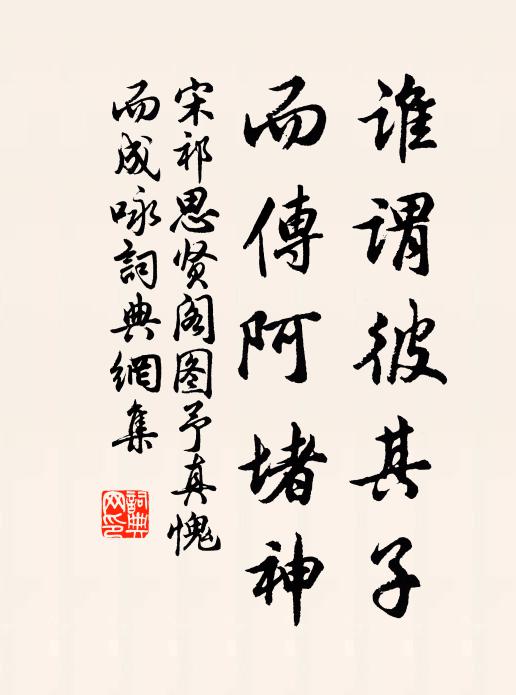 谁謂彼其子
而傳阿堵神
宋祁思贤阁图予真愧
而成咏詞典網集
詞典
网印